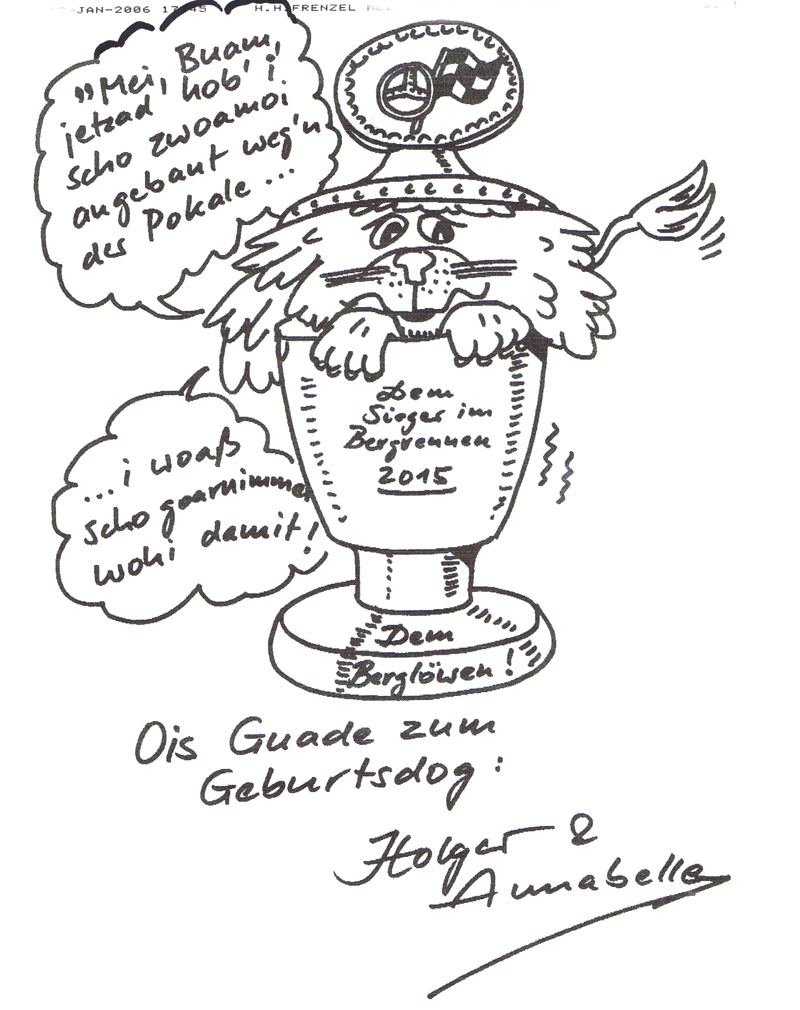 -JAN-2006 17:45 H.H.FRENZEL
„Mei, Buam,
jetzad hob' i
scho zwoamoi
angebaut weg'n
der Pokale ...
... i woaß
scho goarnimmer
wohi damit!
Dem
Sieger im
Bergrennen
2015
Dem
Berglöwen!
Ois Guade zum
Geburtsdog:
Holger &
Annabelle